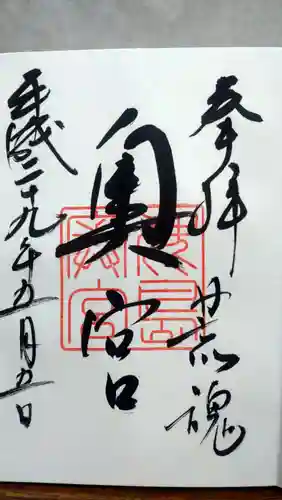 奉拝 荒魂
奥宮
平成二十九年五月五日